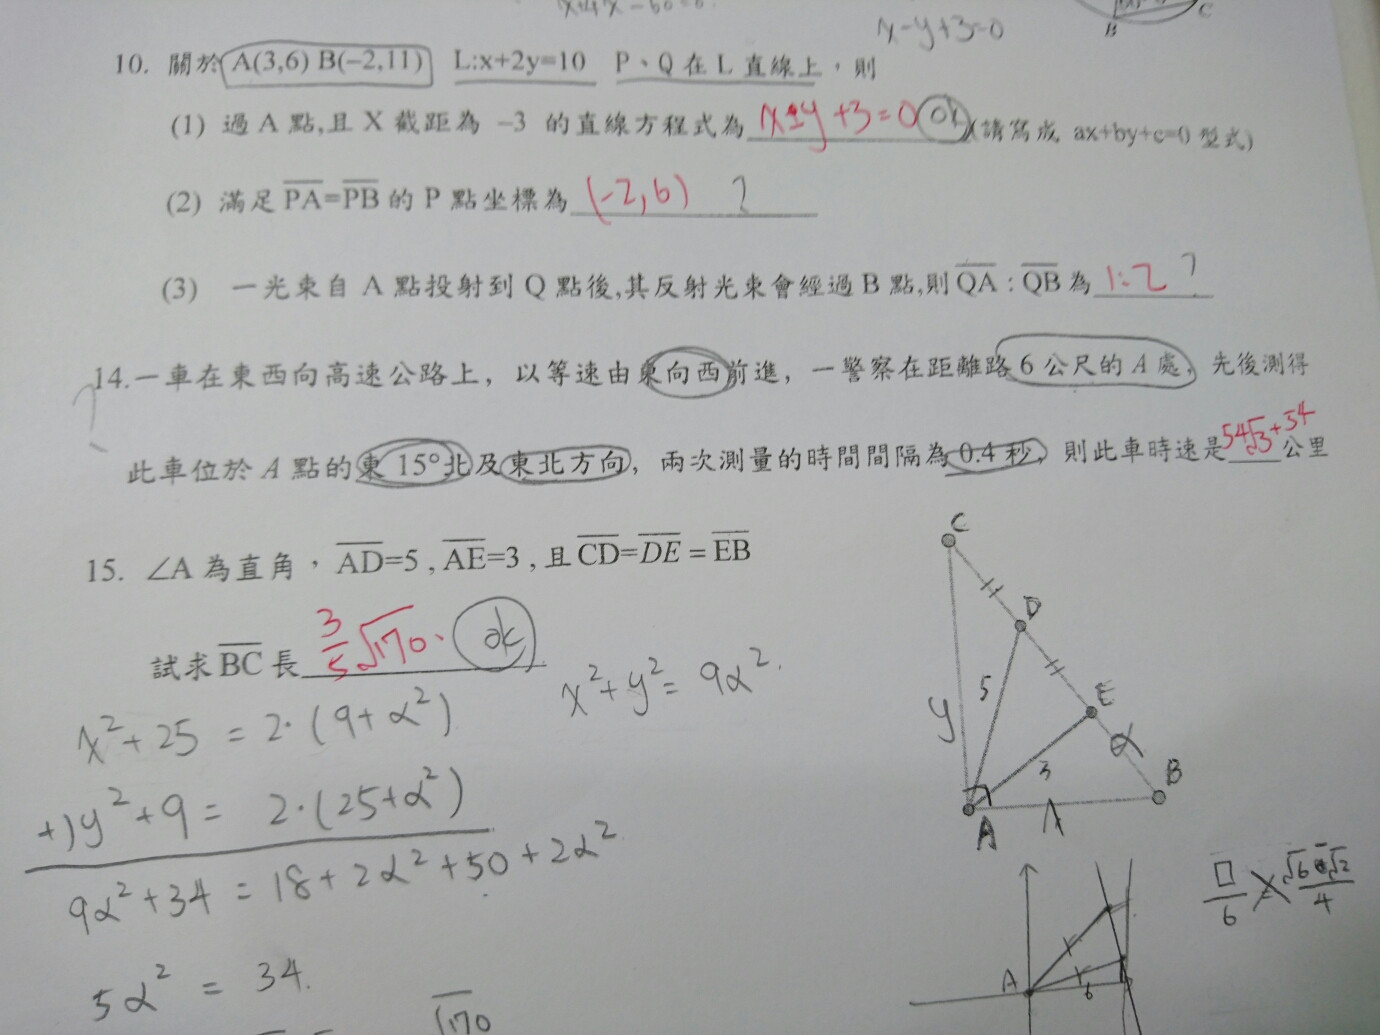 x-y+3=0
B
C
10. 關於 A(3,6) B(−2,11) L:x+2y=10 P、Q 在 L 直線上,則
(1) 過 A 點,且 X 截距為 −3 的直線方程式為 x-y+3=0 ok (請寫成 ax+by+c=0 型式)
(2) 滿足 PA=PB 的 P 點坐標為 (-2,6) ?
(3) 一光束自 A 點投射到 Q 點後,其反射光束會經過 B 點,則 QA : QB 為 1:2 ?
?
14.一車在東西向高速公路上,以等速由東向西前進,一警察在距離路 6 公尺的 A 處,先後測得
此車位於 A 點的東 15°北及東北方向,兩次測量的時間間隔為 0.4 秒,則此車時速是 54√3+54 公里
15. ∠A 為直角,AD=5 , AE=3 , 且 CD=DE = EB
試求 BC 長 3/5 √170. ok
x²+y²= 9α².
x²+25 = 2·(9+α²)
+)y²+9 = 2·(25+α²)
9α²+34 = 18+2α²+50+2α²
5α² = 34.
√170
C
D
5
E
y
α
3
B
A
x
□/6 × √6-√2/4
A
6